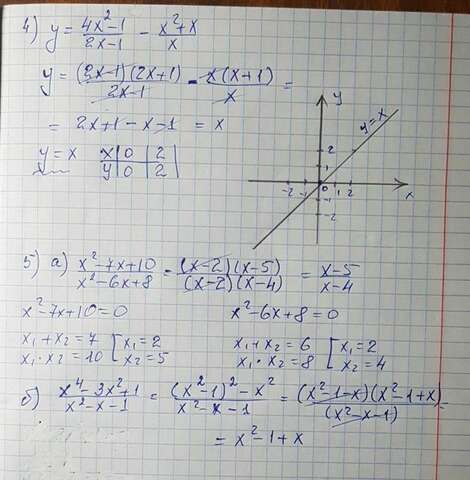 4) y = (4x²-1)/(2x-1) - (x²+x)/x
y = ((2x-1)(2x+1))/(2x-1) - (x(x+1))/x =
= 2x+1-x-1 = x
y = x x | 0 | 2
y | 0 | 2
y
y=x
2
1
-2 -1 0 1 2 x
-1
-2
5) а) (x²-7x+10)/(x²-6x+8) = ((x-2)(x-5))/((x-2)(x-4)) = (x-5)/(x-4)
x²-7x+10=0 x²-6x+8=0
x₁+x₂=7 [x₁=2 x₁+x₂=6 [x₁=2
x₁·x₂=10 [x₂=5 x₁·x₂=8 [x₂=4
б) (x⁴-3x²+1)/(x²-x-1) = ((x²-1)²-x²)/(x²-x-1) = ((x²-1-x)(x²-1+x))/(x²-x-1) =
= x²-1+x